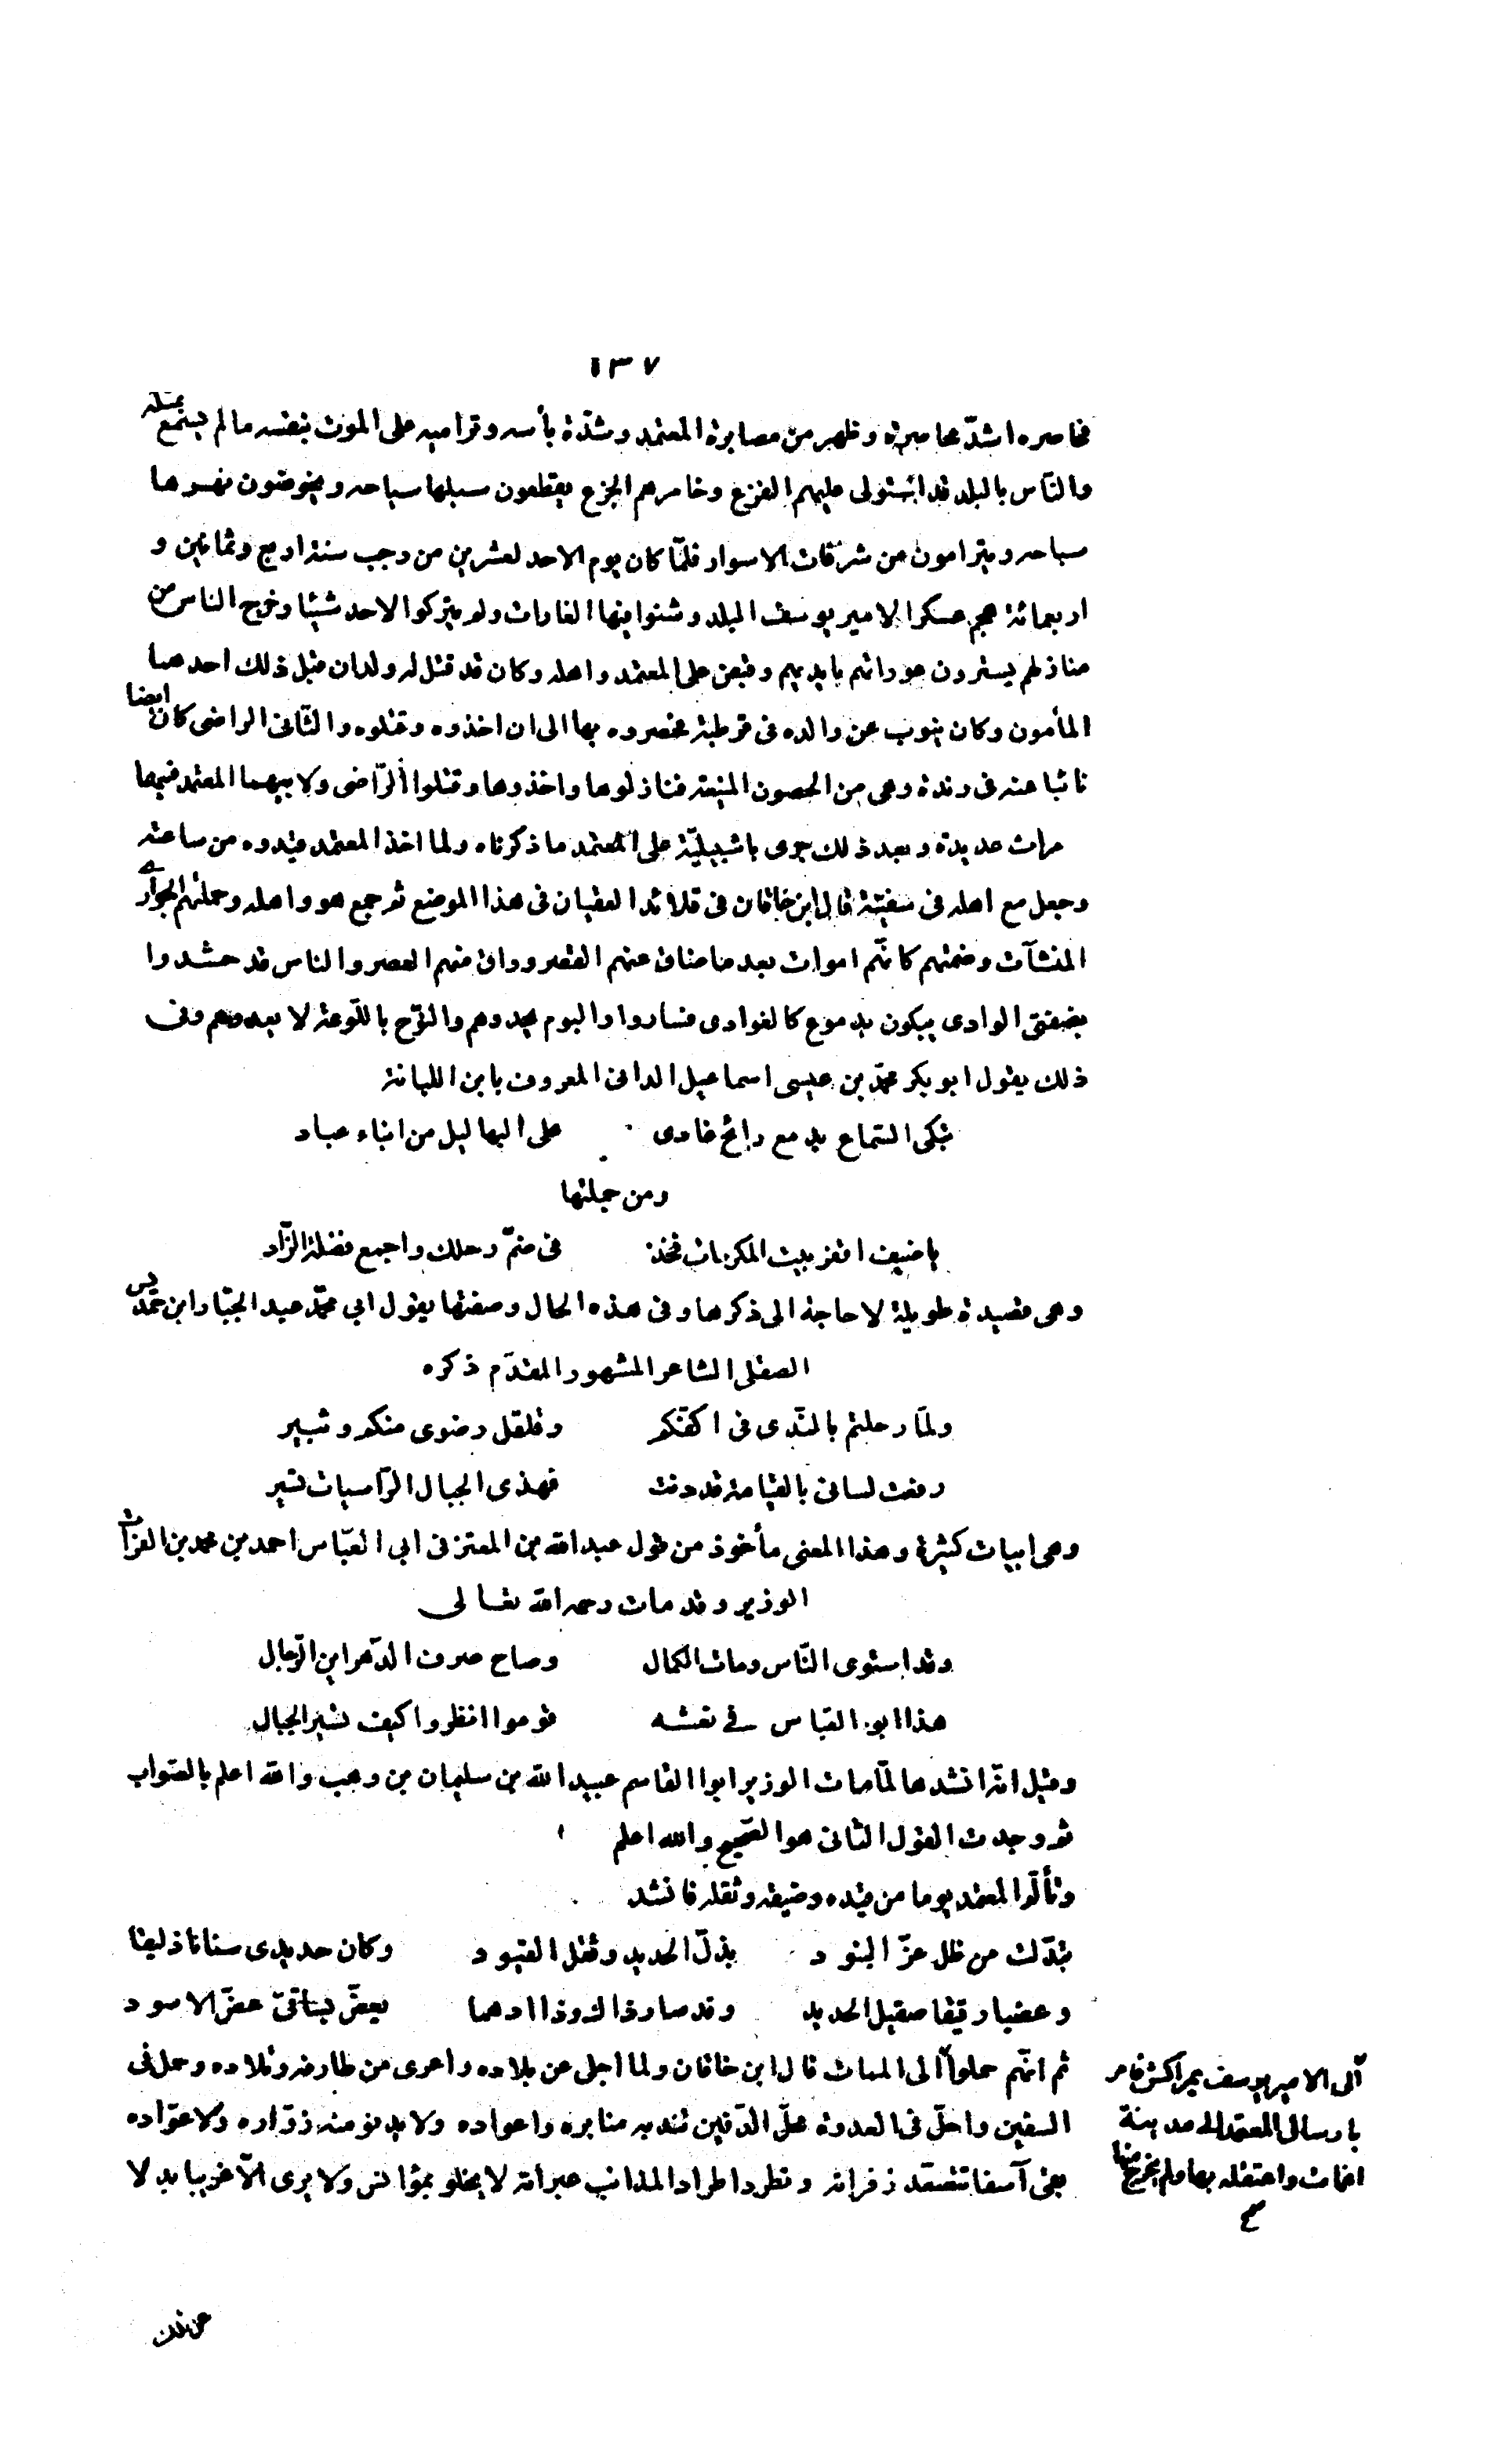 ١٣٧
فحاصره اشدّ محاصرة وظهر من مصابرة المعتمد وشدّة بأسه وتراميه على الموت بنفسه مالم يسمع بمثله
والنّاس بالبلد قد استولى عليهم الفزع وخامرهم الجزع يقطعون سبلها سياحه ويخوضون نهرها
سباحه ويترامون من شرفات الاسوار فلمّا كان يوم الاحد لعشرين من رجب سنة اربع وثمانين و
اربعمائة هجم عسكر الامير يوسف البلد وشنوا فيها الغارات ولم يتركوا لاحد شيئا وخرج الناس من
منازلهم يسترون عوراتهم بايديهم وقبض على المعتمد واهله وكان قد قتل له ولدان قبل ذلك احدهما
المأمون وكان ينوب عن والده فى قرطبة فحصروه بها الى ان اخذوه وقتلوه والثّانى الراضى كان ايضا
نائبا عنه فى رندة وهى من الحصون المنيعة فنازلوها واخذوها وقتلوا الرّاضى ولابيهما المعتمد فيهما
مراث عديدة وبعد ذلك جرى باشبيليّة على المعتمد ما ذكرناه ولما اخذ المعتمد قيدوه من ساعته
وجعل مع اهله فى سفينة قال ابن خاقان فى قلائد العقيان فى هذا الموضع ثم جمع هو واهله وحملتهم الجوارى
المنشآت وضمتهم كانّهم اموات بعد ما ضاق عنهم القصر وراق منهم العصر والناس قد حشدوا
بضفتى الوادى يبكون بدموع كالغوادى فساروا والنوم يحدوهم والنوح باللّوعة لا يعدوهم وفى
ذلك يقول ابو بكر محمّد بن عيسى اسماعيل الدانى المعروف بابن اللبانة
تبكى السّماء بدمع رائح غادى على البهاليل من ابناء عباد
ومن جملتها
يا ضيف اقفر بيت المكرمات فخذ فى ضمّ رحلك واجمع فضلة الزّاد
وهى قصيدة طويلة لا حاجة الى ذكرها وفى هذه الحال وصفتها يقول ابى محمّد عبد الجبّار ابن حمديس
الصقلى الشاعر المشهور المقدّم ذكره
ولمّا رحلتم بالنّدى فى اكفّكم وقلقل رضوى منكم وثبير
رفعت لسانى بالقيامة قد دنت فهذى الجبال الرّاسيات تسير
وهى ابيات كثيرة وهذا المعنى مأخوذ من قول عبد الله بن المعتز فى ابى العبّاس احمد بن محمد بن الفرات
الوزير وقد مات رحمه الله تعالى
وقد استوى النّاس ومات الكمال وصاح صرف الدّهر اين الرّجال
هذا ابو العبّاس فى نعشه قوموا انظروا كيف تسير الجبال
وقيل انّه انشدها لمّا مات الوزير ابوا القاسم عبيد الله بن سليمان بن وهب والله اعلم بالصّواب
ثم وجدت القول الثانى هو الصّحيح والله اعلم
وتألّم المعتمد يوما من قيده وضيقه وثقله فانشد
تبدّلت من ظل عزّ البنود بذلّ الحديد وثقل القيود وكان حديدى سنانا ذليقا
وعضبا رقيقا صقيل الحديد وقد صار ذاك وذا ادهما يعضّ بساقىّ عضّ الاسود
ثم انّهم حملوا الى المات قال ابن خاقان ولما اجلى عن بلاده واعرى من طارفه وتلاده وحمل فى
السفين واحلّ فى العدوة محلّ الدّفين تندبه منابره واعواده ولا يدنو منه زوّاره ولا عوّاده
بقى آسفا تتصعّد زفراته وتطرد اطراد المذانب عبراته لا يخلو بمؤانس ولا يرى الّا غريبا بدلا
آلى الامير يوسف بمراكش فامر
بارسال المعتمد الى مدينة
اغمات واعتقله بها ولم يخرج منها
عن تلك